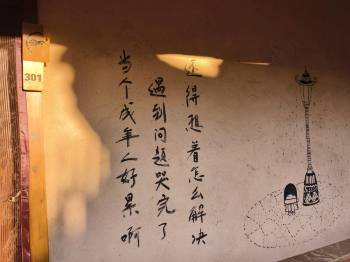 301
当个成年人好累啊
遇到问题哭完了
还得想着怎么解决